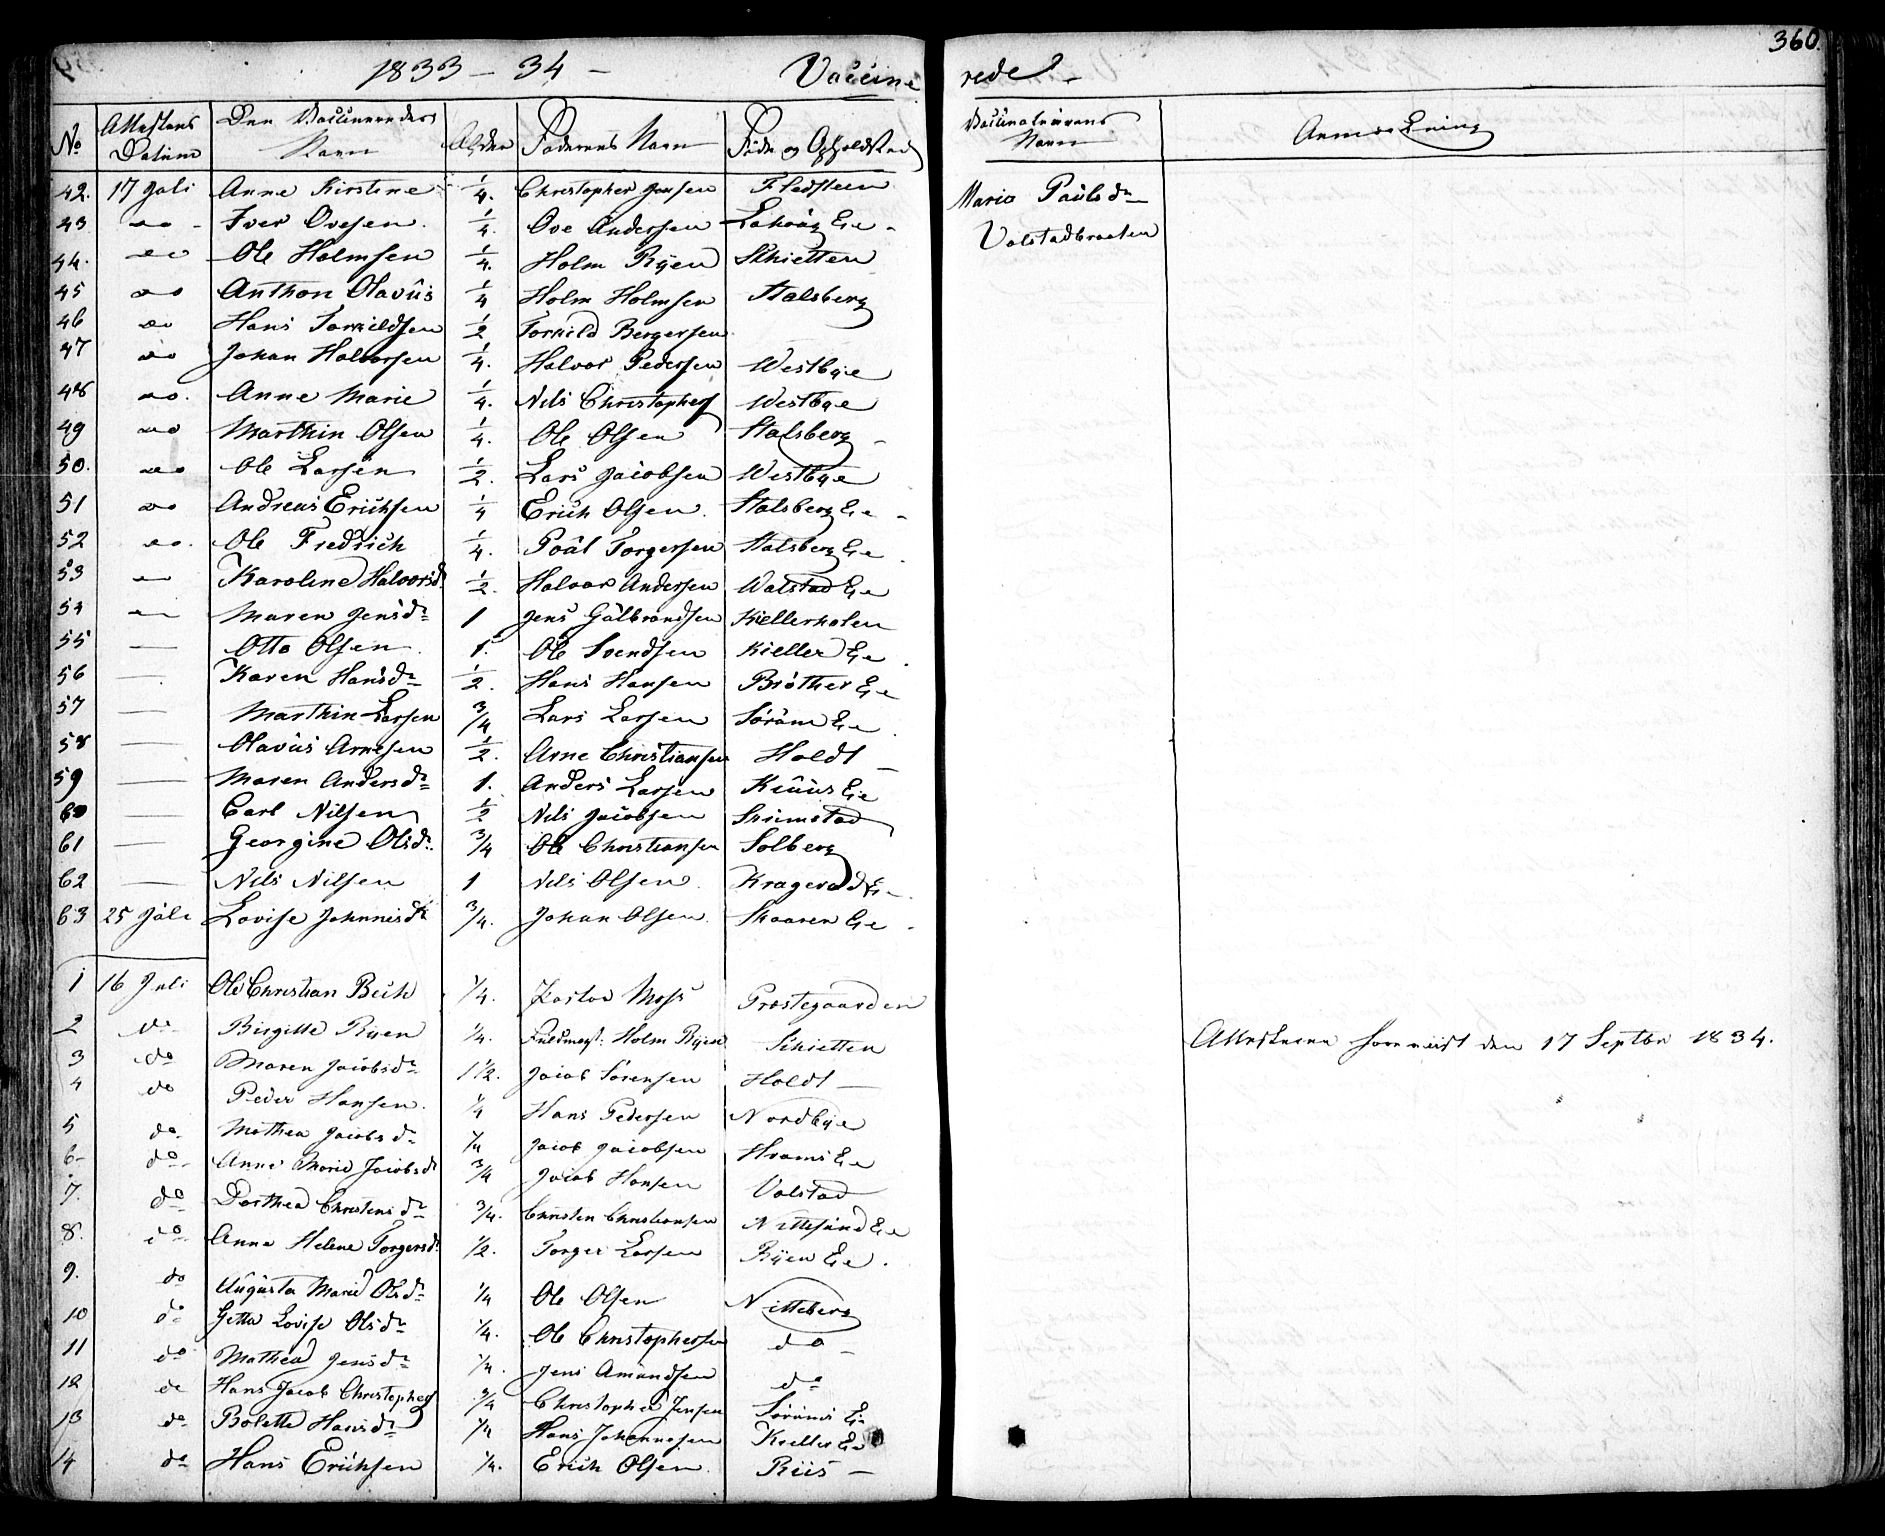 360.
1833 - 34 - Vaccinerede
No Attestens Datum Den Vaccineredes Navn Alder Faderens Navn Føde og Opholdsted Vaccinateurens Navn Anmærkning
42. 17 Juli Anne Kirstine 1/4. Christopher Jensen Fladsteen Maria Paulsdr
43 do - Iver Ovesen. 1/4. Ove Andersen Eie - Valstadbraaten
44. do Ole Holmsen 1/4. Holm Ryen Schietten
45 do Anthon Olavus 1/4 Holm Holmsen Stalsberg
46 do Hans Torkildsen 1/2 Torkild Bergersen
47 do Johan Halvorsen 1/4. Halvor Pedersen Westbye
48 do. Anne Marie 1/4. Nils Christophers Westbye
49 do Marthin Olsen 1/4. Ole Olsen Stalsberg -
50. do Ole Larsen 1/2. Lars Jacobsen Westbye
51 do Andreas Erichsen 1/4 Erich Olsen. Stalsberg Eie -
52 do. Ole Fredrich 1/4. Poul Torgersen Stalsberg Eie
53 — Karoline Halvorsd 1/2. Halvor Andersen Walstad Eie
54 — Maren Jensdr 1 Jens Gulbrandsen Kiellerholen
55 — Otto Olsen. 1. Ole Svendsen Kieller Eie.
56 — Karen Hansdr 1/2. Hans Hansen Brøther Eie
57 — Marthin Larsen 3/4 Lars Larsen Sørum Eie.
58 — Olavus Arnesen 1/2. Arne Christiansen Holdt -
59 — Maren Andersdr 1. Anders Larsen Eie
60 — Carl Nilsen 1/2 Nils Jacobsen
61 — Georgine Olsdr. 3/4 Ole Christiansen Solberg
62 — Nils Nilsen 1 Nils Olsen. Kragerud Eie.
63 25 Juli Lovise Johannesdr 3/4. Johan Olsen. Skaaren Eie.
1 16 Juli Ole Christian Bech 1/4. Pastor Moss Præstegaarden
2 do Birgitte Ryen 1/4. Fuldmegt: Holm Ryen Schietten Attesterne forevist den 17 Septbr 1834.
3 do Maren Jacobsdr 1 1/2. Jacob Sørensen Holdt -
4 do Peder Hansen. 1/4 Hans Pedersen Nordbye
5 do. Mathea Jacobsdr 1/4 Jacob Jacobsen Hvams Eie
6- do. Anne Marie Jacobsd 3/4 Jacob Hansen Valstad
7. do Dorthea Christensdr 3/4. Christen Christiansen Nittesund Eie
8. do Anne Helene Torgersdr 1/2. Torger Larsen Ryen Eie.
9. do Augusta Marie Olsdr 1/4 Ole Olsen Nitteberg
10 do Gette Lovise Olsdr 1/4. Ole Christophersen do -
11 do Mathea Jensdr 1/4. Jens Amundsen do
12 do Hans Jacob Christophers 3/4 Christopher Jensen Sørums Eie
13 do Bolette Hansdr 1/4 Hans Johannesen Kieller Eie
14 do Hans Erichsen 1/4. Erich Olsen. Riis -